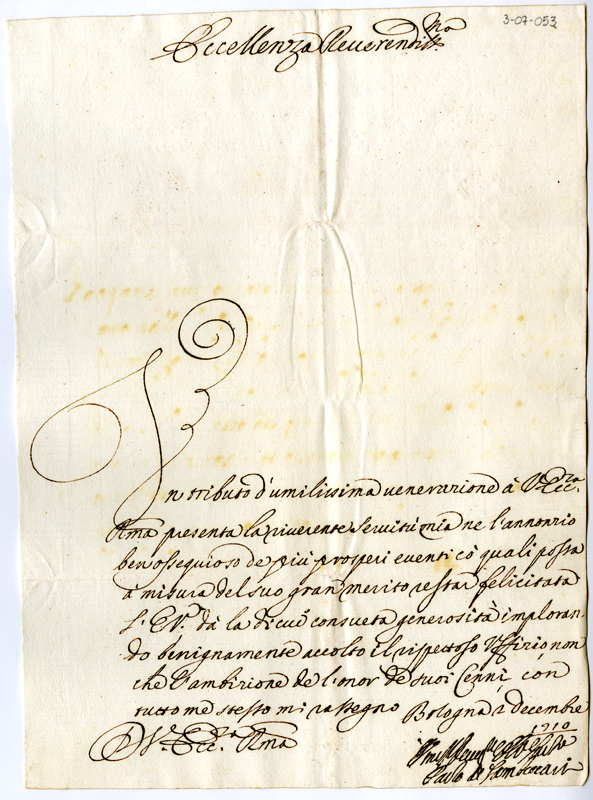 3-07-053
Eccellenza Reverendiss.ma
In tributo d'umilissima venerazione à V.ra Ecc.za
Rma presenta la riverente servitù mia ne l'annonzio
ben ossequioso de più prosperi eventi có quali possa
a misura del suo gran merito restar felicitata
l'E.V.ra dà la di cui consueta generosità imploran-
do benignamente accolto il rispettoso Uffizio non
che l'ambizione de l'onor de suoi Cenni, con
tutto me stesso mi rassegno Bologna 2 decembre
D V.ra Ecc.za Rma
1710
Carlo de